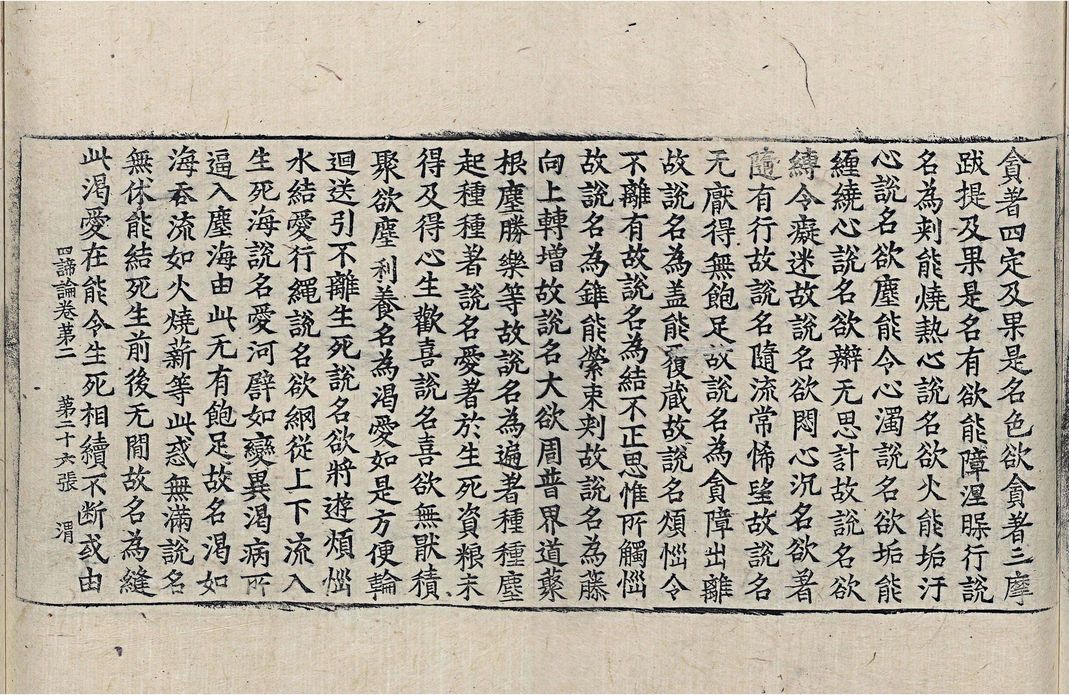 貪著四定及果是名色欲貪著三摩
跋提及果是名有欲能障涅槃行說
名為刾能燒熱心說名欲火能垢汙
心說名欲塵能令心濁說名欲垢能
纏繞心說名欲辦无思計故說名欲
縛令癡迷故說名欲悶心沉名欲著
隨有行故說名隨流常悕望故說名
无厭得無飽足故說名為貪障出離
故說名為盖能覆蔵故說名煩惱令
不離有故說名為結不正思惟所觸惱
故說名為錐能縈束刾故說名為藤
向上轉增故說名大欲周普界道蘂
根塵勝樂等故說名為遍著種種塵
起種種著說名愛著於生死資粮未
得及得心生歡喜說名喜欲無猒積
聚欲塵利養名為渴愛如是方便輪
迴送引不離生死說名欲將遊煩惱
水結愛行繩說名欲網從上下流入
生死海說名愛河譬如變異渴病所
逼入塵海由此无有飽足故名渴如
海吞流如火燒薪等此惑無滿說名
無休能結死生前後无間故名為縫
此渴愛在能令生死相續不断或由
四諦論卷第二　第二十六張　渭